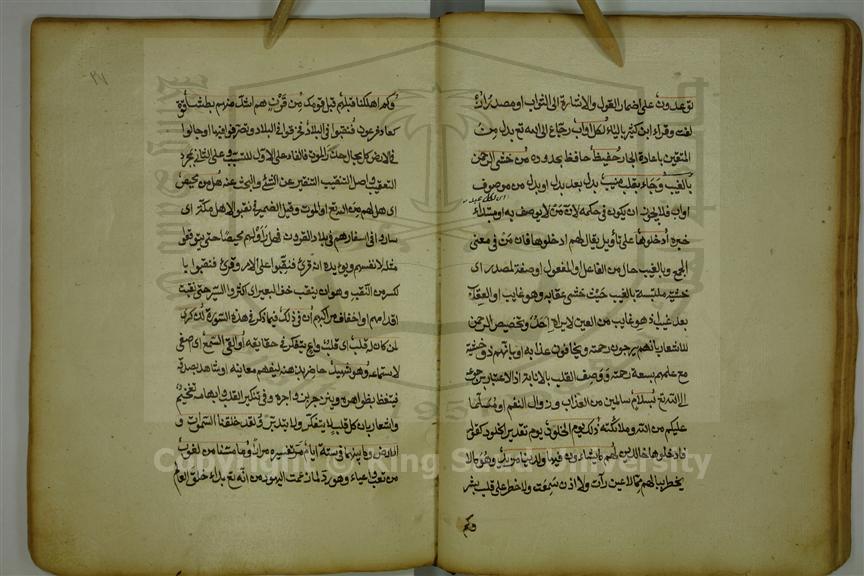 توعدون على اضمار القول والاشارة الى الثواب او مصدر ازلفت
لفت وقراء ابن كثير بالياء لكل اواب رجاع الى الله تع بدل من
المتقين باعادة الجار حفيظ حافظ بحدوده من خشى الرحمن
بالغيب وجاء بقلب منيب بدل بعد بدل او بدل من موصوف
اواب فلا يجوز ان يكون في حكمه لان من لا يوصف به او مبتداء
خبره ادخلوها على تأويل يقال لهم ادخلوها فان من في معنى
الجمع وبالغيب حال من الفاعل او المفعول او صفة لمصدر اى
خشية ملتبسة بالغيب حيث خشى عقابه وهو غايب او العقاب
بعد غيب اذ هو غايب من العين لا يراه احد وتخصيص الرحمن
للاشعار بانهم يرجون رحمته ويخافون عذابه او بانهم ذو خشية
مع علمهم بسعة رحمته ووصف القلب بالانابة اذ الاعتبار برجوعه
الى الله تع بسلام سالمين من العذاب وزوال النعم او مسلما
عليكم من الله وملائكته ذلك يوم الخلود يوم تقدير الخلود كقوله
فادخلوها خالدين لهم ما يشاءون فيها ولدينا مزيد وهو ما لا
يخطر ببالهم مما لا عين رأت ولا اذن سمعت ولا خطر على قلب بشر
وكم
وكم اهلكنا قبلهم قبل قومك من قرن هم اشد منهم بطشا قوة
كعاد وفرعون فنقبوا في البلاد فخرقوا في البلاد وتصرفوا فيها او جالوا
في الارض كل مجال حذر الموت فالفاء على الاول للتسبيب وعلى الثاني لمجرد
التعقيب واصل التنقيب التنقير عن الشئ والبحث عنه هل من محيص
اى هل لهم من الله تع او الموت وقيل الضمير في نقبوا لاهل مكة اى
ساروا في اسفارهم في بلاد القرون فهل رأوا لهم محيصا حتى يتوقعوا
مثله لانفسهم ويؤيده انه قرئ فنقبوا على الامر وقرئ فنقبوا با
لكسر من النقب وهو ان ينقب خف البعير اى كثروا السير حتى نقبت
اقدامهم او اخفاف مراكبهم ان في ذلك فيما ذكر في هذه السورة لذكرى
لمن كان له قلب اى قلب واع يتفكر في حقايقه او القى السمع اى صغى
لاستماعه وهو شهيد حاضر بذهنه ليفهم معانيه او شاهد بصدقه
فيتعظ بظواهره وينزجر بزواجره وفي تنكير القلب وابهامه تفخيم
واشعار بان كل قلب لا يتفكر ولا يتدبر ولقد خلقنا السموات و
الارض وما بينهما في ستة ايام مر تفسيره مرارا وما مسنا من لغوب
من تعب واعياء وهو رد لما زعمت اليهود من انه تع بداء خلق العالم
Copyright © King Saud University
1957